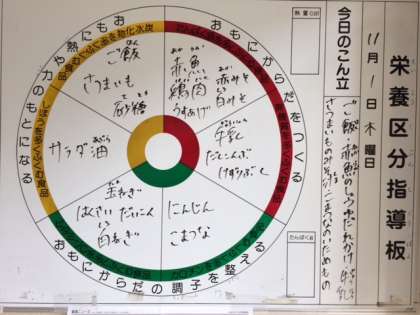 栄養区分指導板
11月1日木曜日
今日のこん立
ご飯 赤魚のしょうゆだれかけ 牛乳
さつまいものみそ汁 こまつなのいためもの
熱量
たんぱく質
おもに熱や力のもとになる
おもにからだをつくる
おもにからだの調子を整える
しぼうを多くふくむ食品
ご飯
さつまいも
砂糖
赤魚 赤みそ
鶏肉 白みそ
うすあげ
サラダ油
牛乳
だしこんぶ
けずりぶし
玉ねぎ
はくさい だいこん
白ねぎ
にんじん
こまつな